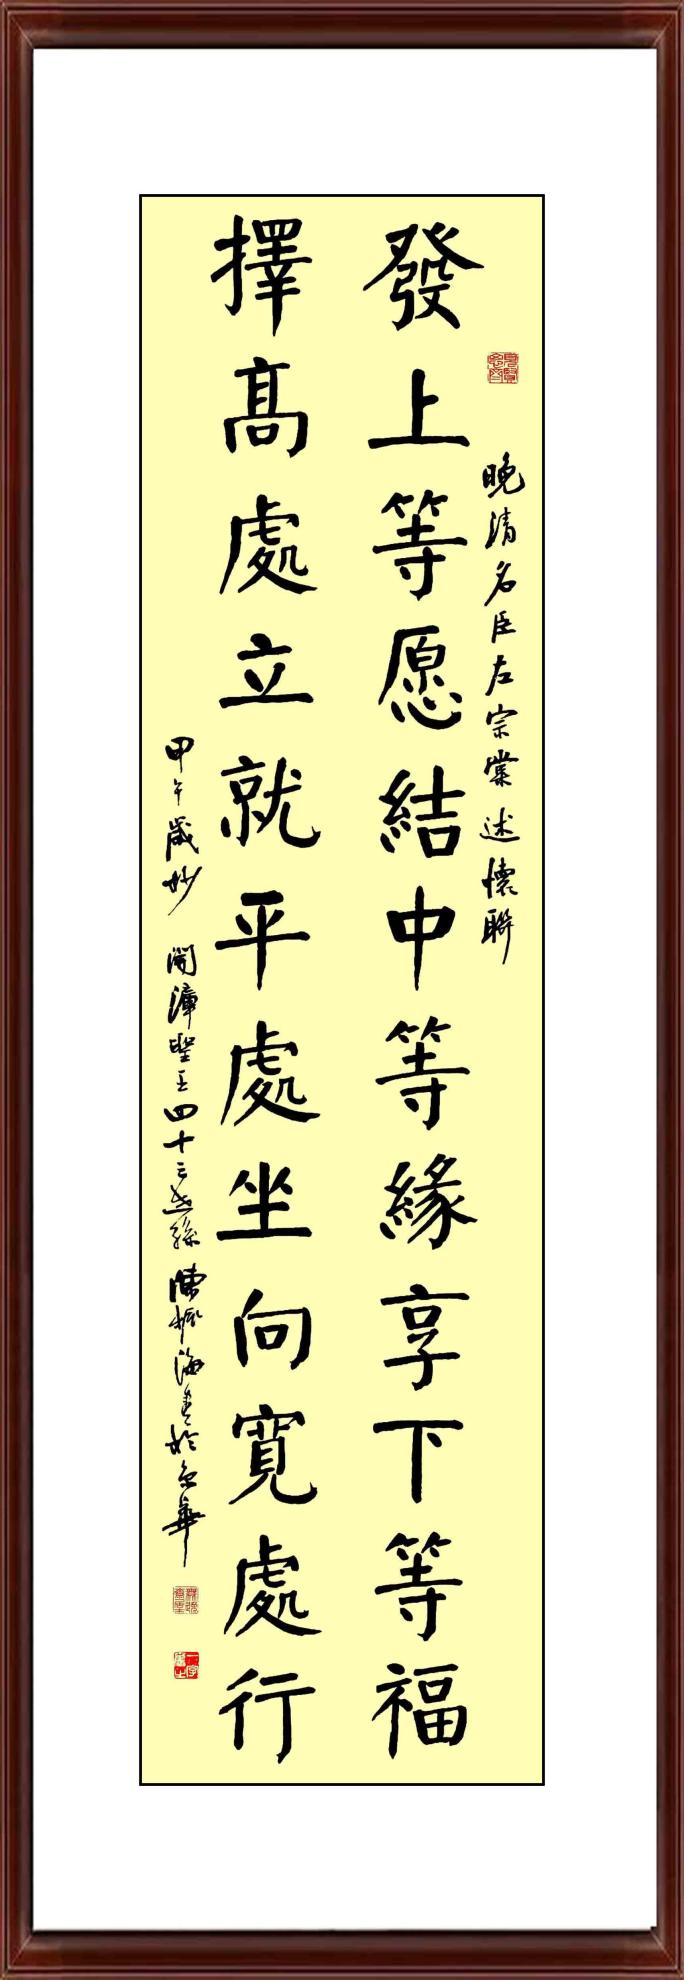 晚清名臣左宗棠述懷聯
發上等愿結中等緣享下等福
擇高處立就平處坐向寬處行
甲午歲妙 開漳聖王四十三世孫 陳振海書於京華